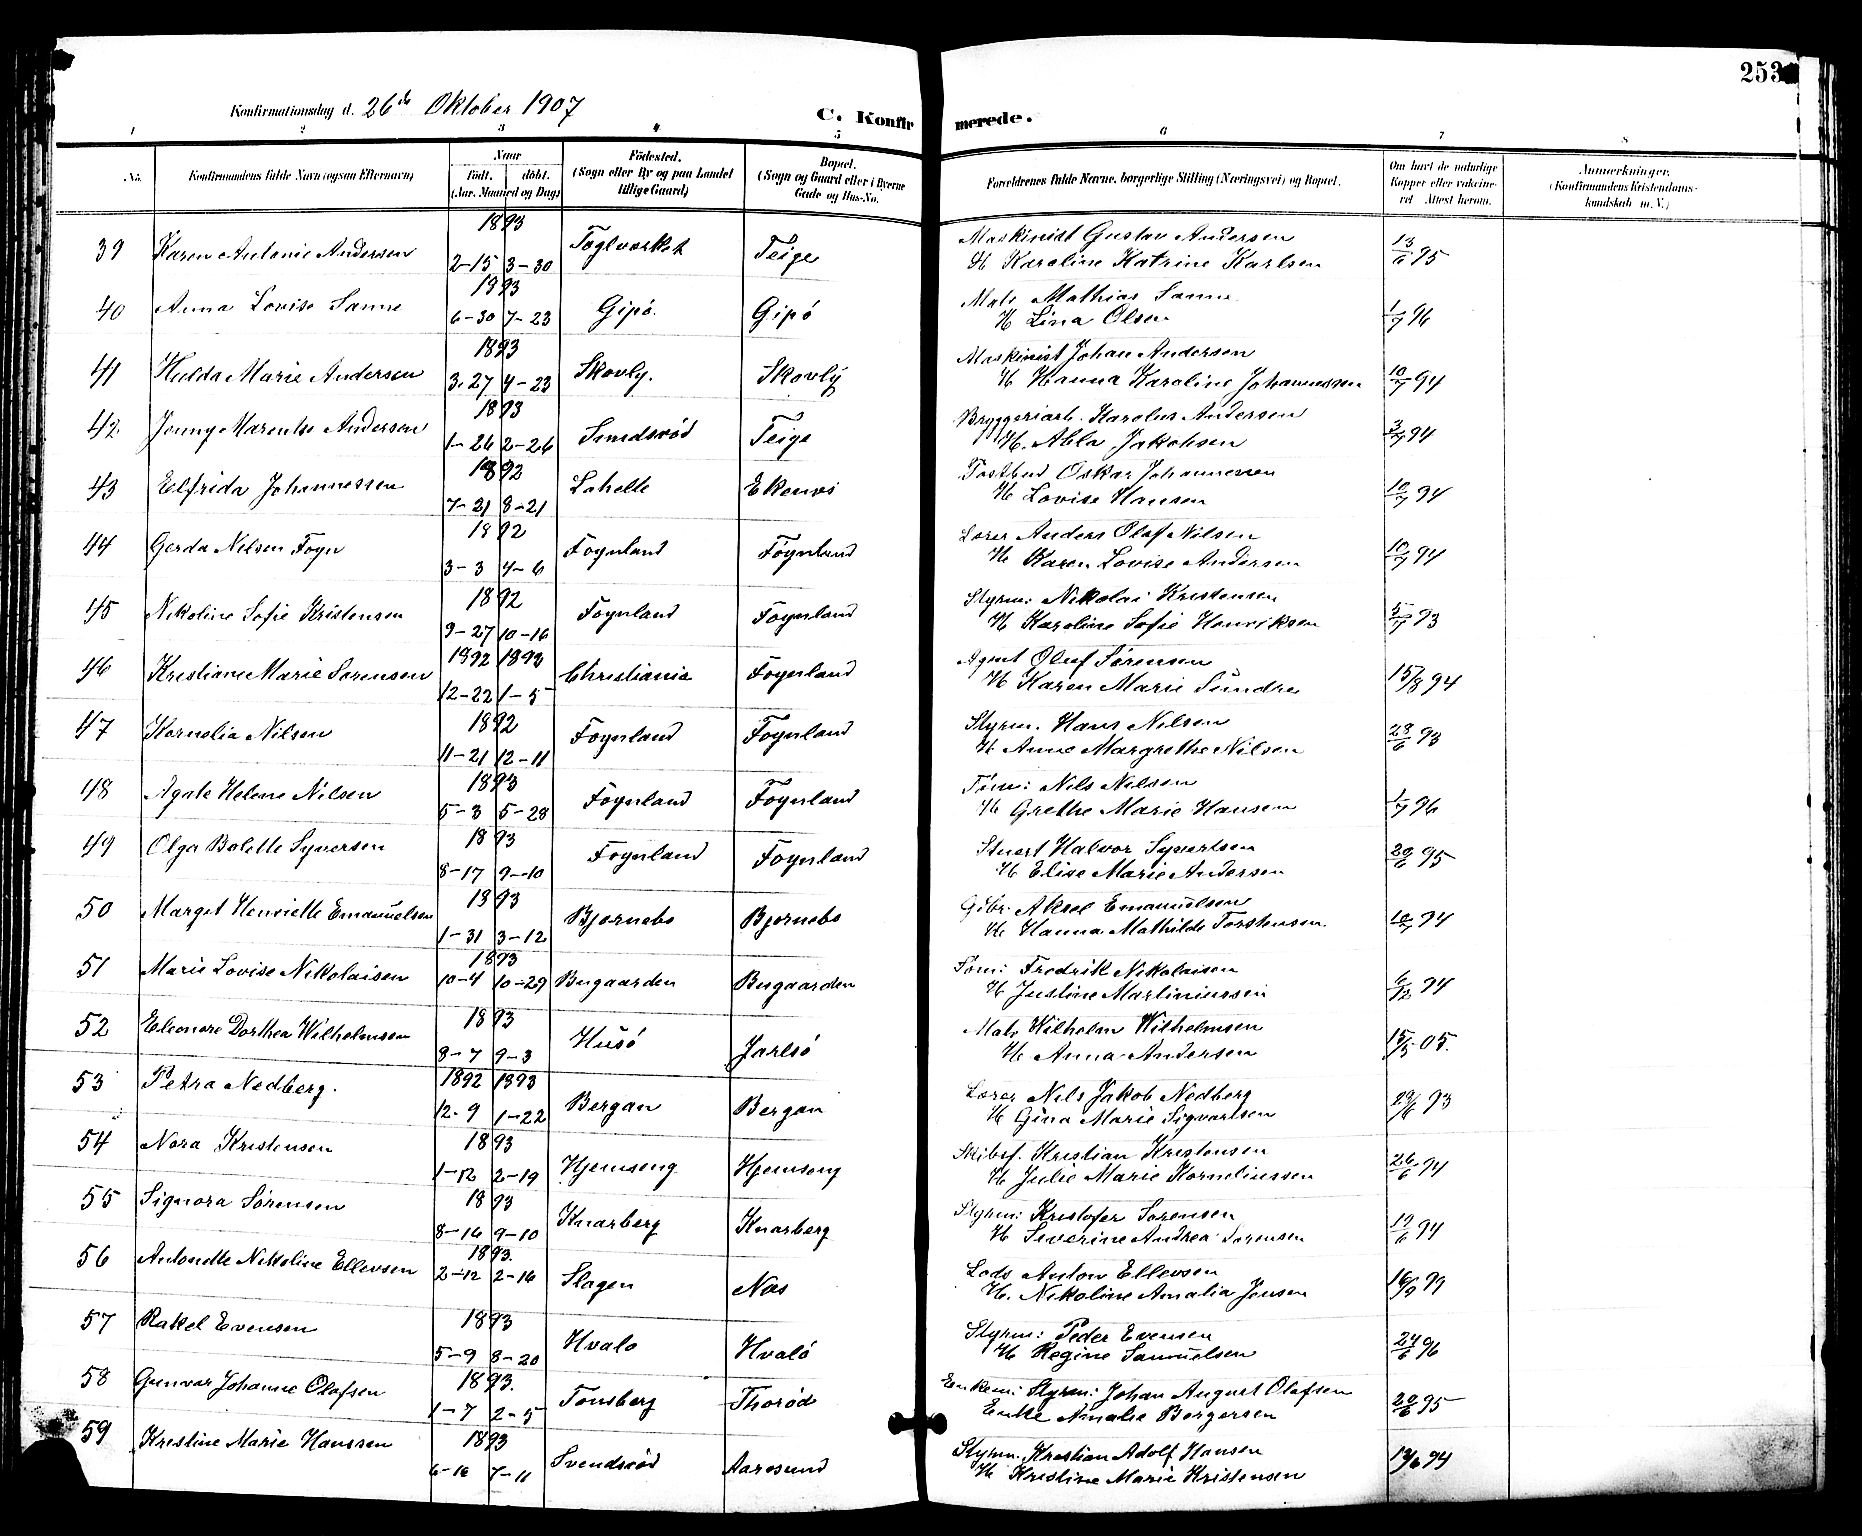 253
Konfirmationsdag d. 26de Oktober 1907
C. Konfirmerede.
1 2 3 4 5 6 7 8
No. Konfirmandens fulde Navn (ogsaa Efternavn) Naar Født. døbt. (Aar. Maaned og Dag) Födested. (Sogn eller By og paa Landet tillige Gaard) Bopæl. (Sogn og Gaard eller i Byerne Gade og Hus-No. Forældrenes fulde Navne, borgerlige Stilling (Næringsvei) og Bopæl. Om havt de naturlige Kopper eller vaccineret Attest herom. Anmerkninger. (Konfirmandens Kristendomskundskab m. V.)
39 Karen Antonie Andersen 1893 2-15 3-30 Teglverket Teige Maskinist Gustav Andersen
H Karoline Katrine Karlsen 13/6 95
40 Anna Lovise Sanne 1893 6-30 7-23 Gipö. Gipö Matr. Mathias Sanne
H Lina Olsen 1/7 96
41 Hulda Marie Andersen 1893 3-27 4-23 Skovly. Skovly Maskinist Johan Andersen
H Hanna Karoline Johannessen 10/7 94
42 Jenny Marenthe Andersen 1893 1-26 2-26 Smidsrød Teige Bryggeriarb. Karolus Andersen
H. Abla Jakobsen 3/7 94
43 Elfrida Johannessen 1892 7-21 8-21 Lahelle Ekenes Postbud Oskar Johannessen
H Lovise Hansen 10/7 94
44 Gerda Nilsen Føyn 1892 3-3 4-6 Føynland Føynland Lærer Anders Olaf Nilsen
H Karen Lovise Andersen 10/7 94
45 Nikoline Sofie Kristensen 1892 9-27 10-16 Føynland Føynland Styrm: Nikolai Kristensen
H Karoline Sofie Henriksen 5/7 93
46 Kristiane Marie Sørensen 1892 1893 12-22 1-5 Christiania Føynland Agent Oluf Sørensen
H Karen Marie Sundre 15/8 94
47 Kornelia Nilsen 1892 11-21 12-11 Føynland Føynland Styrm. Hans Nilsen
H Anne Margrethe Nilsen 28/6 93
48 Agate Helene Nilsen 1893 5-3 5-28 Føynland Føynland Töm: Nils Nilsen
H Grethe Marie Hansen 1/7 96
49 Olga Bolette Syversen 1893 8-17 9-10 Føynland Føynland Stuert Halvor Syvertsen
H Elise Marie Andersen 20/6 95
50 Margit Henriette Emanuelsen 1893 1-31 3-12 Bjørnebo Bjørnebo Gibr. Aksel Emanuelsen
H Hanna Mathilde Torstensen. 10/7 94
51 Marie Lovise Nikolaisen 1893 10-4 10-29 Bugaarden Bugaarden Tøm: Fredrik Nikolaisen
H Justine Martiniussen 6/12 94
52 Eleonore Dorthea Wilhelmsen 1893 8-7 9-3 Husö Jarlsö Matr. Wilhelm Wilhelmsen
H Anna Andersen 15/5 05.
53 Petra Nedberg. 1892 1893 12-9 1-22 Bergan Bergan Lærer Nils Jakob Nedberg
H Gina Marie Sigvartsen 29/6 93
54 Nora Kristensen 1893 1-12 2-19 Hjemseng Hjemseng Skibsf. Kristian Kristensen
H Julie Marie Korneliussen 26/6 94
55 Signora Sørensen 1893 8-16 9-10 Knarberg Knarberg Styrm: Kristofer Sørensen
H Severine Andrea Sørensen 19/6 94
56 Antonette Nikoline Ellevsen 1893. 2-12 2-16 Slagen Næs Lods Anton Ellevsen
H. Nikoline Amalia Jensen 16/9 99
57 Rakel Evensen 1893 5-9 8-20 Hvalø Hvalö Styrm: Peder Evensen
H Regine Samuelsen 24/6 96
58 Gunvor Johanne Olafsen 1893. 1-7 2-5 Tønsberg Thorød Enkem: Styrm: Johan August Olafsen
Enke Amalie Borgersen 20/6 95
59 Kristine Marie Hanssen 1893 6-16 7-11 Svendsrød Aarøsund Styrm. Kristian Adolf Hansen
H Kristine Marie Kristensen 19/6 94